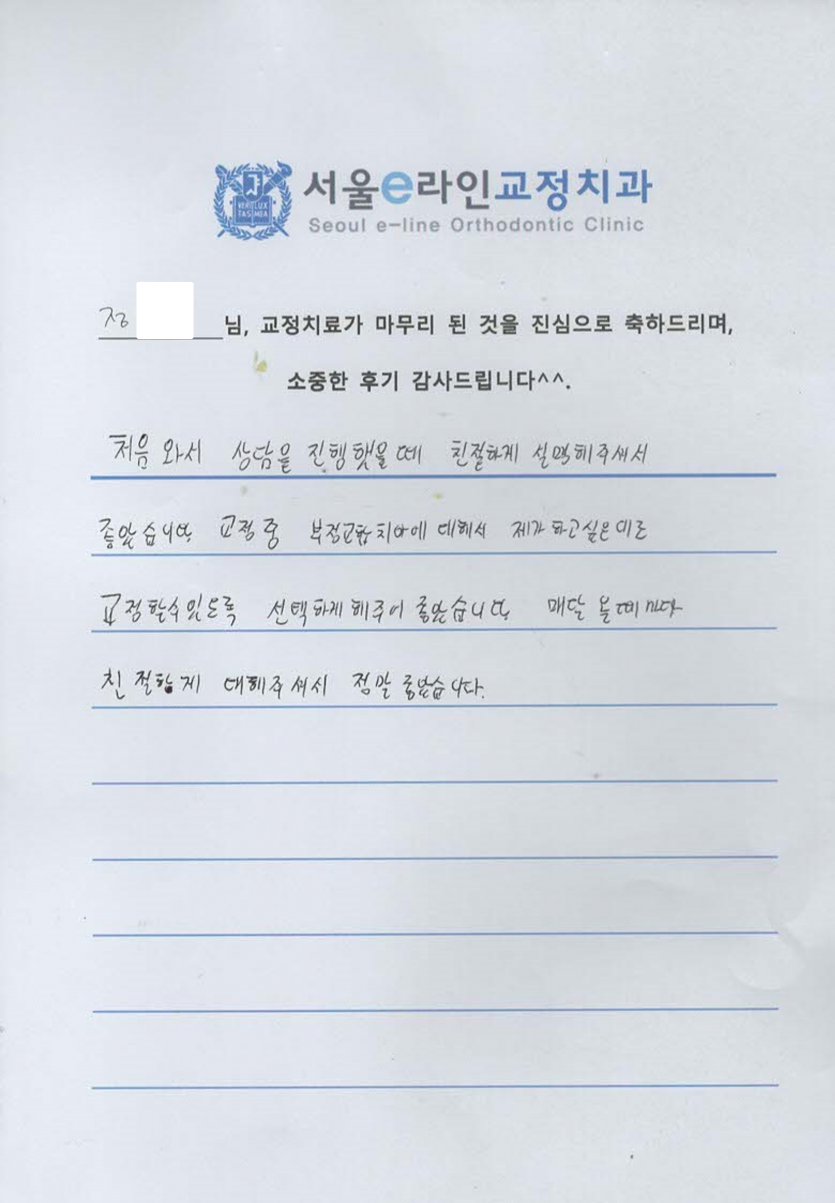 VERI LUX TAS MEA
서울e라인교정치과
Seoul e-line Orthodontic Clinic
정 님, 교정치료가 마무리 된 것을 진심으로 축하드리며,
소중한 후기 감사드립니다^^.
처음 와서 상담을 진행했을 때 친절하게 설명해주셔서
좋았습니다. 교정 중 부정교합 치아에 대해서 제가 하고싶은대로
교정 할수있도록 선택하게 해주어 좋았습니다. 매달 올때 마다
친절하게 대해주셔서 정말 좋았습니다.